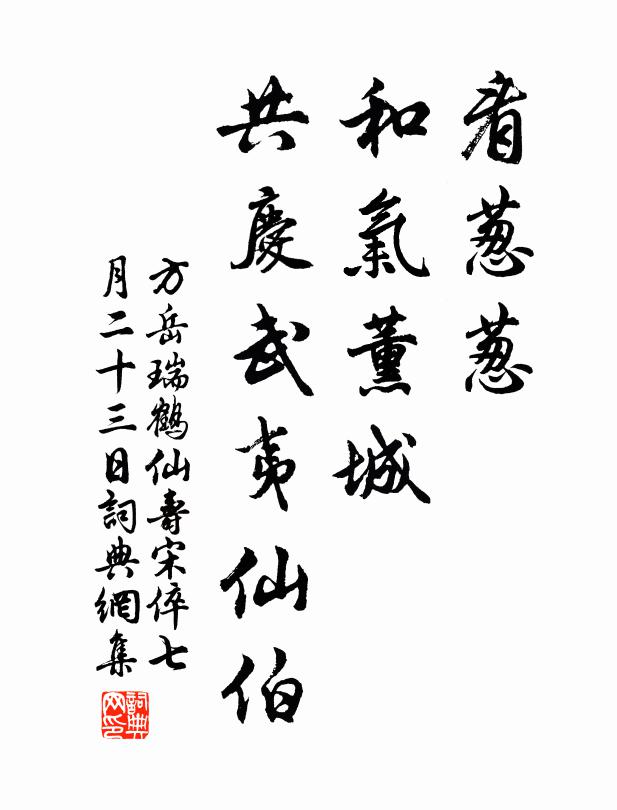 看葱葱
和氣薰城
共慶武夷仙伯
方岳瑞鶴仙壽宋倅七
月二十三日詞典網集
詞典網印